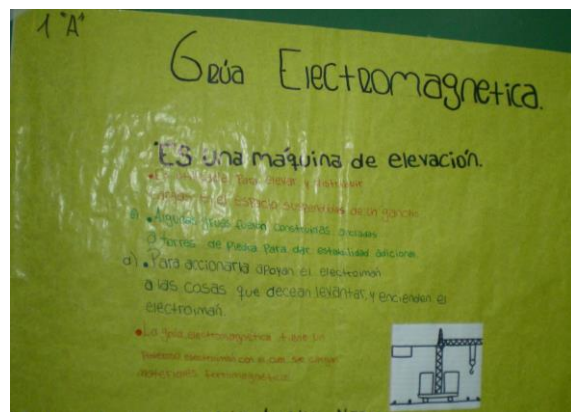 1 "A"
Grúa Electromagnetica.
*Es una máquina de elevación.
para elevar y distribuir
en el espacio suspendidas de un gancho
• Algunas grúas fueron construidas
torres de piedra para dar estabilidad adicional
d) • Para accionarla apoyan el electroimán
a las cosas que decean levantar, y encienden el
electroimán.
• La grúa electromagnetica tiene un
electroimán con el cual se
materiales